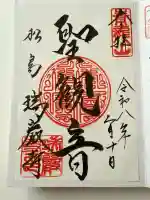 奉拝
令和八年
月十日
聖観音
松島
瑞巌寺